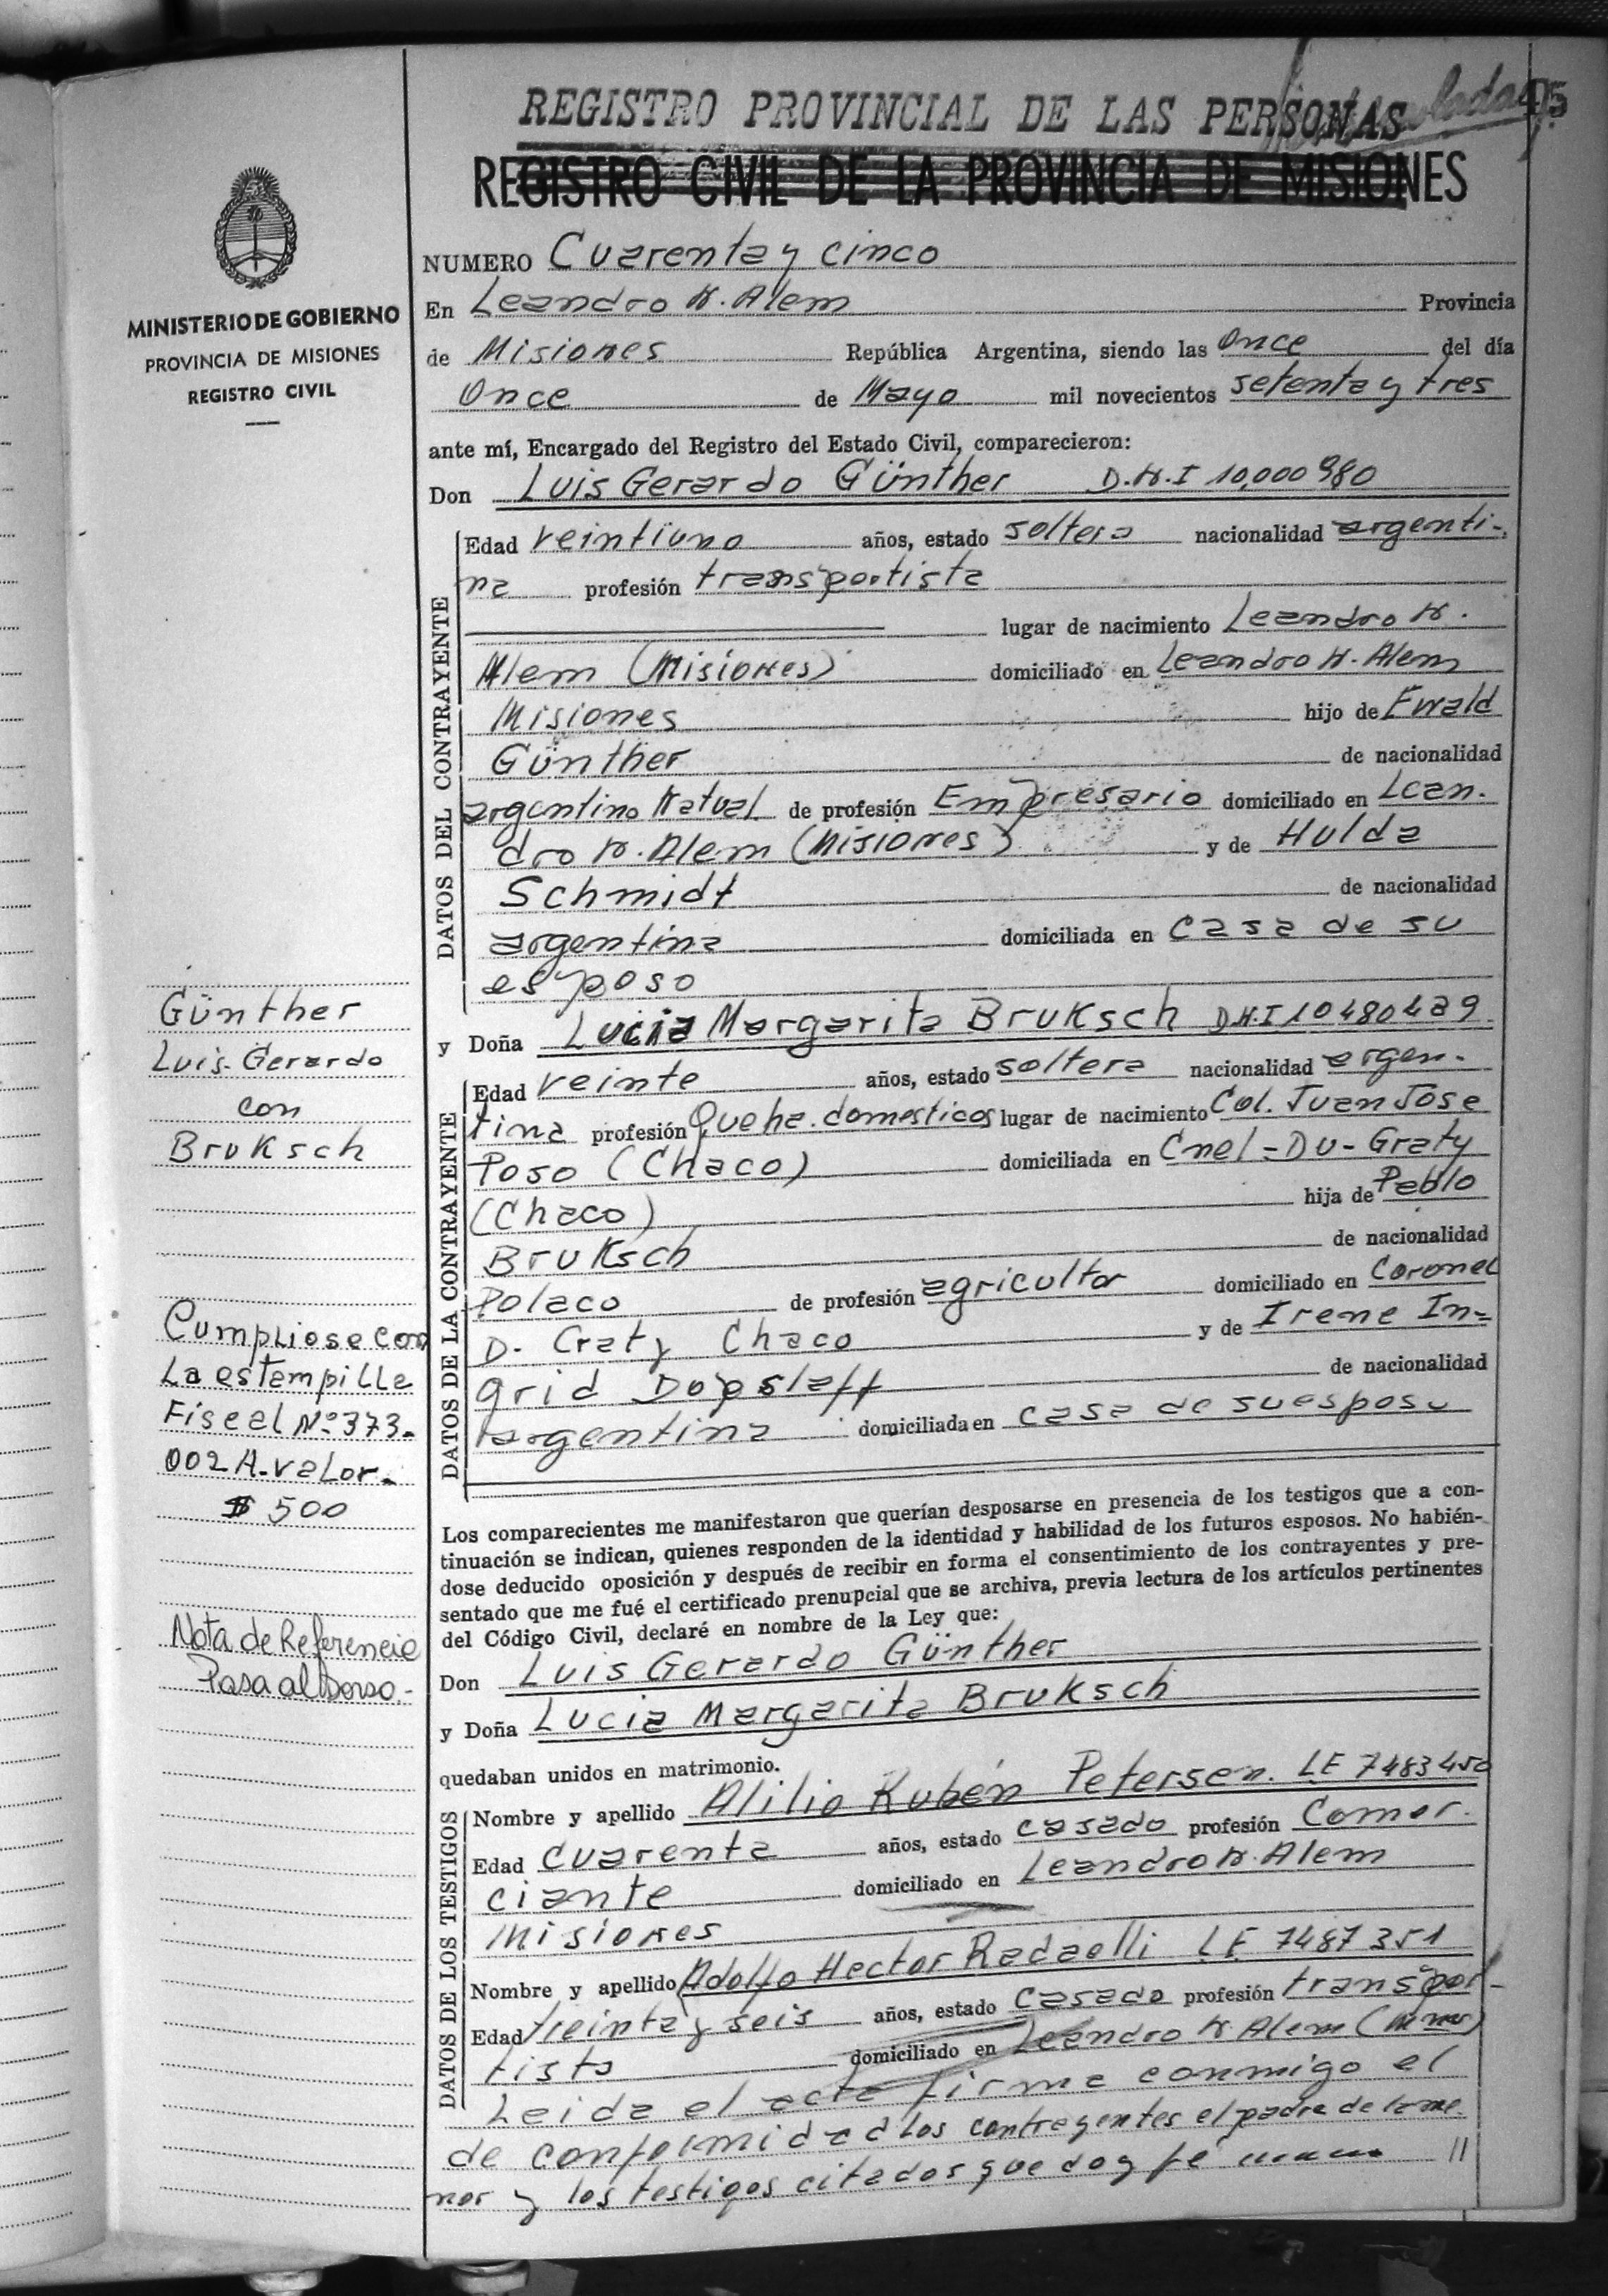 45
REGISTRO PROVINCIAL DE LAS PERSONAS
REGISTRO CIVIL DE LA PROVINCIA DE MISIONES
MINISTERIO DE GOBIERNO
PROVINCIA DE MISIONES
REGISTRO CIVIL
NUMERO Cuarenta y cinco
En Leandro N. Alem Provincia
de Misiones República Argentina, siendo las Once del día
Once de Mayo mil novecientos setenta y tres
ante mí, Encargado del Registro del Estado Civil, comparecieron:
Don Luis Gerardo Günther D.N.I 10,000980
DATOS DEL CONTRAYENTE
Edad veintiuno años, estado soltero nacionalidad argenti-
na profesión transportista
lugar de nacimiento Leandro N.
Alem (Misiones) domiciliado en Leandro N. Alem
Misiones hijo de Ewald
Günther de nacionalidad
argentino Natual. de profesión Empresario domiciliado en Lean.
dro N. Alem (Misiones) y de Hulda
Schmidt de nacionalidad
argentina domiciliada en casa de su
esposo
y Doña Lucia Margarita Bruksch DNI 10480429
DATOS DE LA CONTRAYENTE
Edad veinte años, estado soltera nacionalidad argen-
tina profesión Queha. domesticos lugar de nacimiento Col. Juan Jose
Poso (Chaco) domiciliada en Cnel-Du-Graty
(Chaco) hija de Pablo
Bruksch de nacionalidad
Polaco de profesión agricultor domiciliado en Coronel
D. Graty Chaco y de Irene In=
grid Dopslaff de nacionalidad
argentina domiciliada en casa de su esposo
Günther
Luis Gerardo
con
Bruksch
Cumpliose con
La estampilla
Fiscal Nº 373-
002 A-valor-
$ 500
Nota de Referencia
Pasa al Dorso-
Los comparecientes me manifestaron que querían desposarse en presencia de los testigos que a con-
tinuación se indican, quienes responden de la identidad y habilidad de los futuros esposos. No habién-
dose deducido oposición y después de recibir en forma el consentimiento de los contrayentes y pre-
sentado que me fué el certificado prenupcial que se archiva, previa lectura de los artículos pertinentes
del Código Civil, declaré en nombre de la Ley que:
Don Luis Gerardo Günther
y Doña Lucia Margarita Bruksch
quedaban unidos en matrimonio.
DATOS DE LOS TESTIGOS
Nombre y apellido Alilio Rubén Petersen. LE 7483450
Edad cuarenta años, estado casado profesión Comer.
ciante domiciliado en Leandro N. Alem
Misiones
Nombre y apellido Adolfo Hector Radaelli LE 7487351
Edad treinta y seis años, estado casado profesión transpor-
tista domiciliado en Leandro N Alem
Leida el acta firma conmigo el
de conformidad los contrayentes el padre de la me
nor y los testigos citados que doy fé //